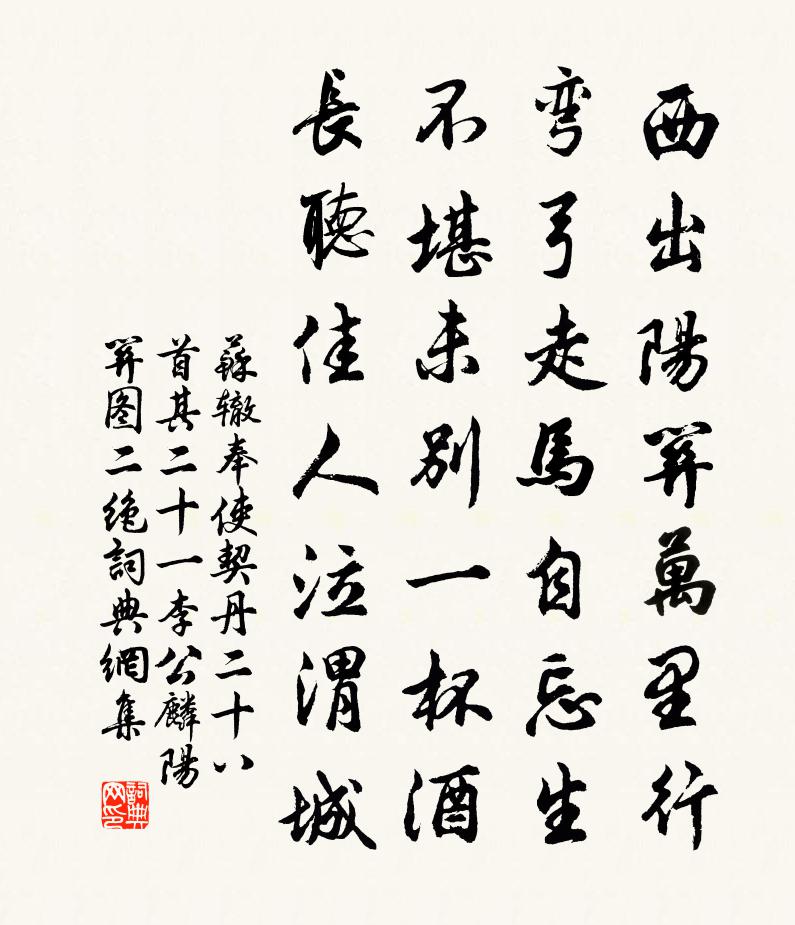 西出陽關萬里行
弯弓走馬自忘生
不堪未別一杯酒
長聽佳人泣渭城
蘇辙奉使契丹二十八
首其二十一李公麟陽
關图二絶詞典網集
詞典网印